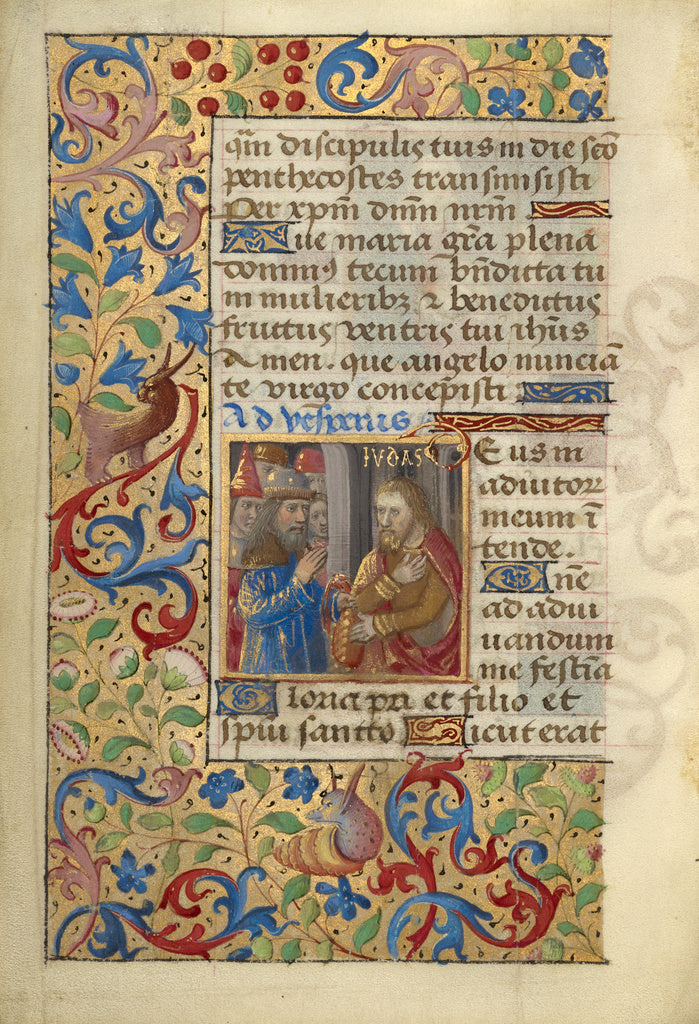 qm̄ discipulis tuis in die sc̄o
penthecostes transmisisti
Per xpm̄ dn̄m nr̄m
ue maria gr̄a plena
domin⁹ tecum bn̄dicta tu
in mulieribz ⁊ benedictus
fructus ventris tui ihūs
Amen. que angelo nunciā
te virgo concepisti
Ad vesperus
IVDAS
Eus in
adiutor
meum ī
tende.
ne
ad adiu
uandum
me festīa
loria pri et filio et
spiui sancto icut erat